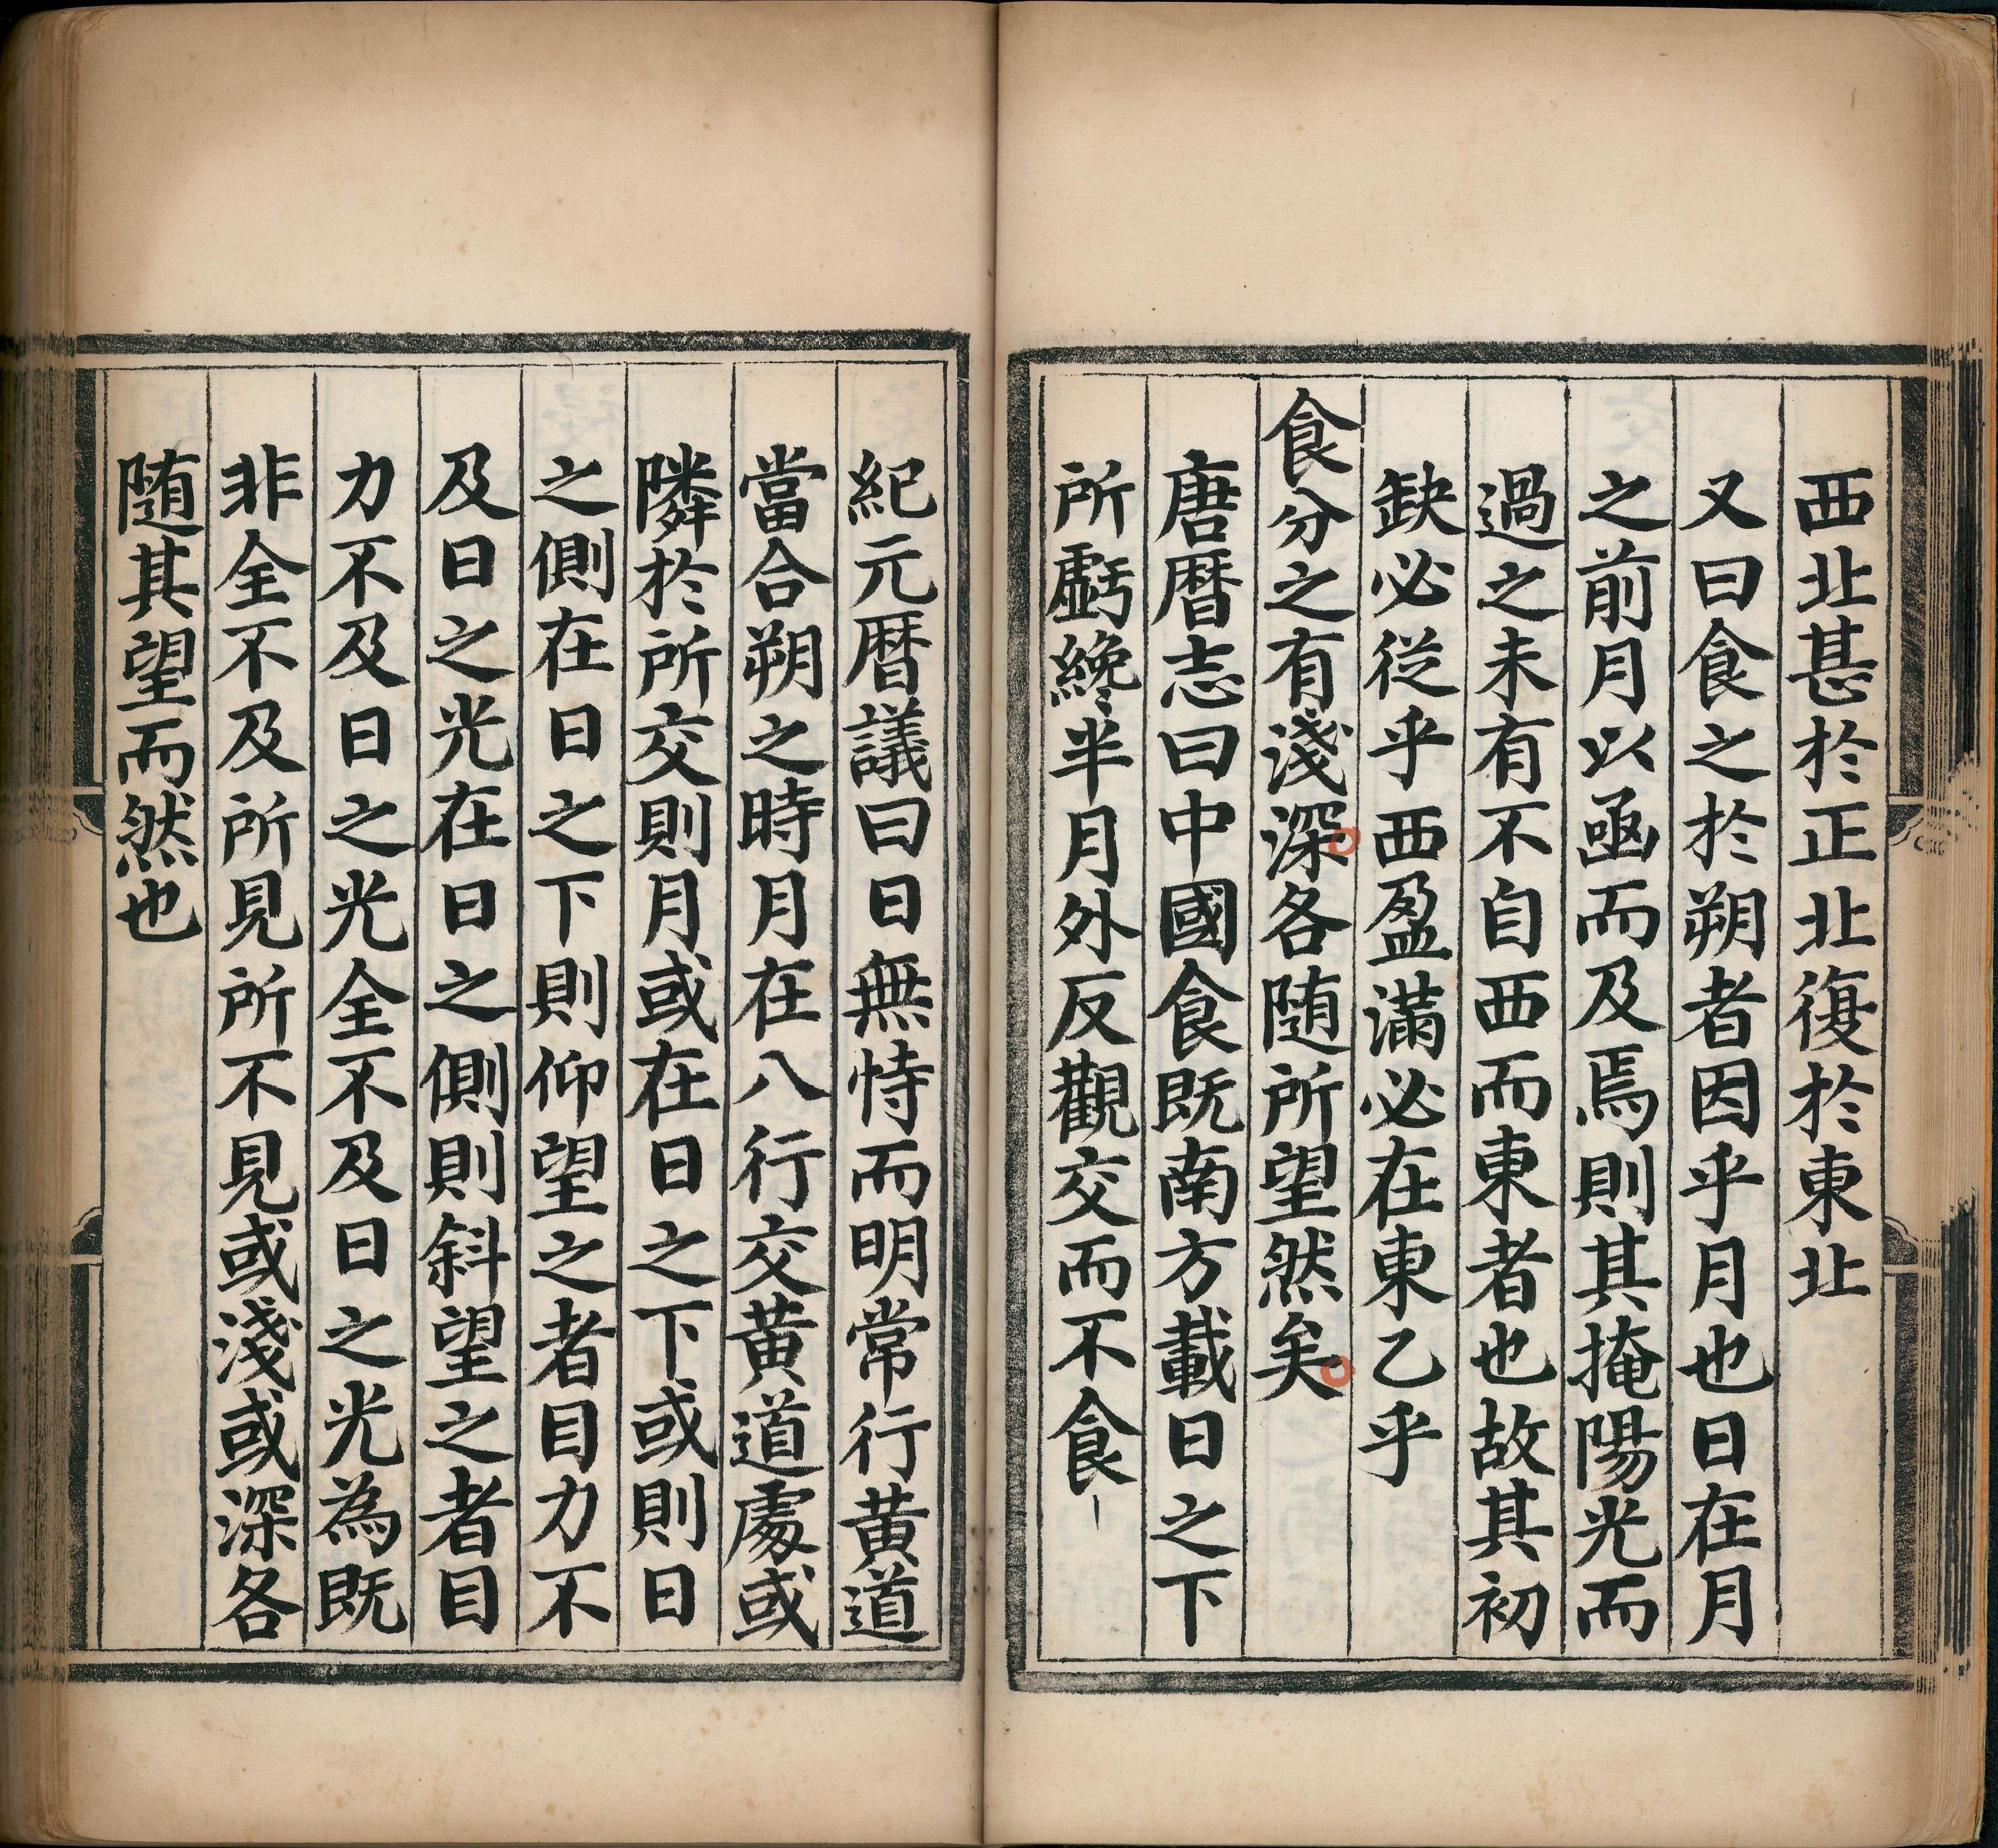 西北甚於正北復於東北
又曰食之於朔者因乎月也日在月
之前月以亟而及焉則其掩陽光而
過之未有不自西而東者也故其初
缺必從乎西盈滿必在東乙乎
食分之有淺深各随所望然矣
唐暦志曰中國食既南方載日之下
所虧纔半月外反觀交而不食
紀元暦議曰日無恃而明常行黄道
當合朔之時月在八行交黄道處或
隣於所交則月或在日之下或則日
之側在日之下則仰望之者目力不
及日之光在日之側則斜望之者目
力不及日之光全不及日之光為既
非全不及所見所不見或淺或深各
随其望而然也